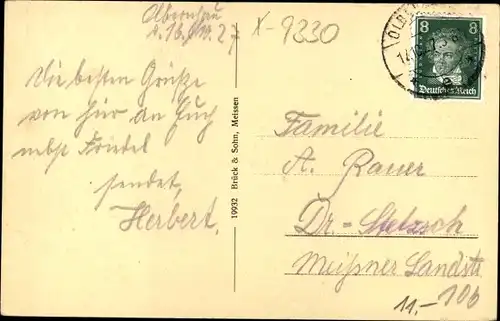 Olbernhau
d. 16.IV.27
X-9330
Die besten Grüße
von hier an Euch
nebst Friedel
sendet,
Herbert.
19932 Brück & Sohn, Meissen
8 8
Deutsches Reich
Familie
A. Rauer
Dr.=Stetzsch
Meißner Landstr
106
11.-